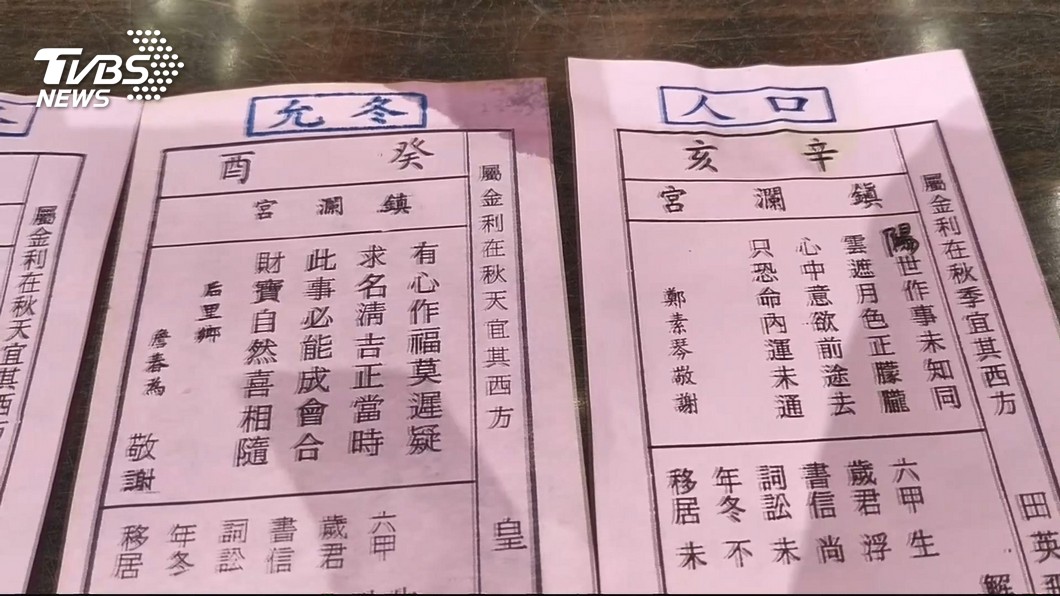 TVBS
NEWS
屬金利在秋天宜其西
允冬
癸酉
鎮瀾宮
屬金利在秋天宜其西方
有心作福莫遲疑
求名清吉正當時
此事必能成會合
財寶自然喜相隨
后里鄉
敬謝
皇
六甲
歲君
書信
詞訟
年冬
移居
人口
辛亥
鎮瀾宮
屬金利在秋季宜其西方
陽世作事未知同
雲遮月色正朦朧
心中意欲前途去
只恐命內運未通
鄭素琴敬謝
田英
解
六甲生
歲君浮
書信尚
詞訟未
年冬不
移居未